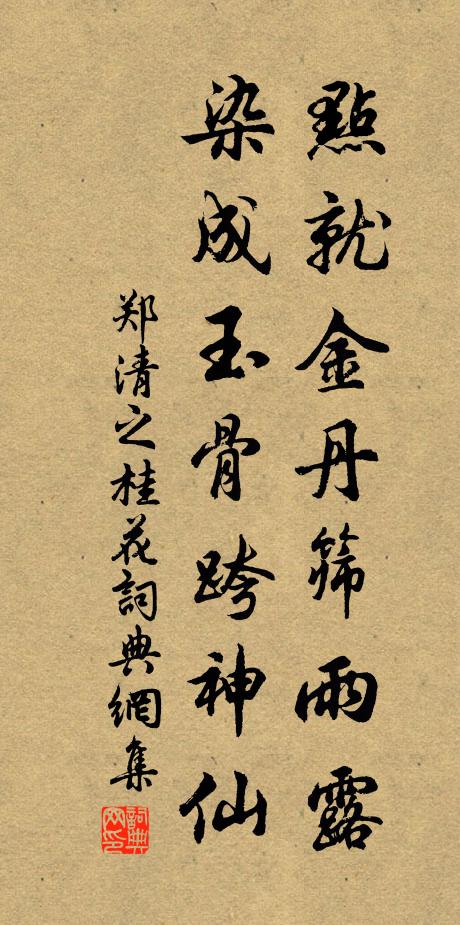 點就金丹篩雨露
染成玉骨跨神仙
郑清之桂花詞典網集
詞典网印